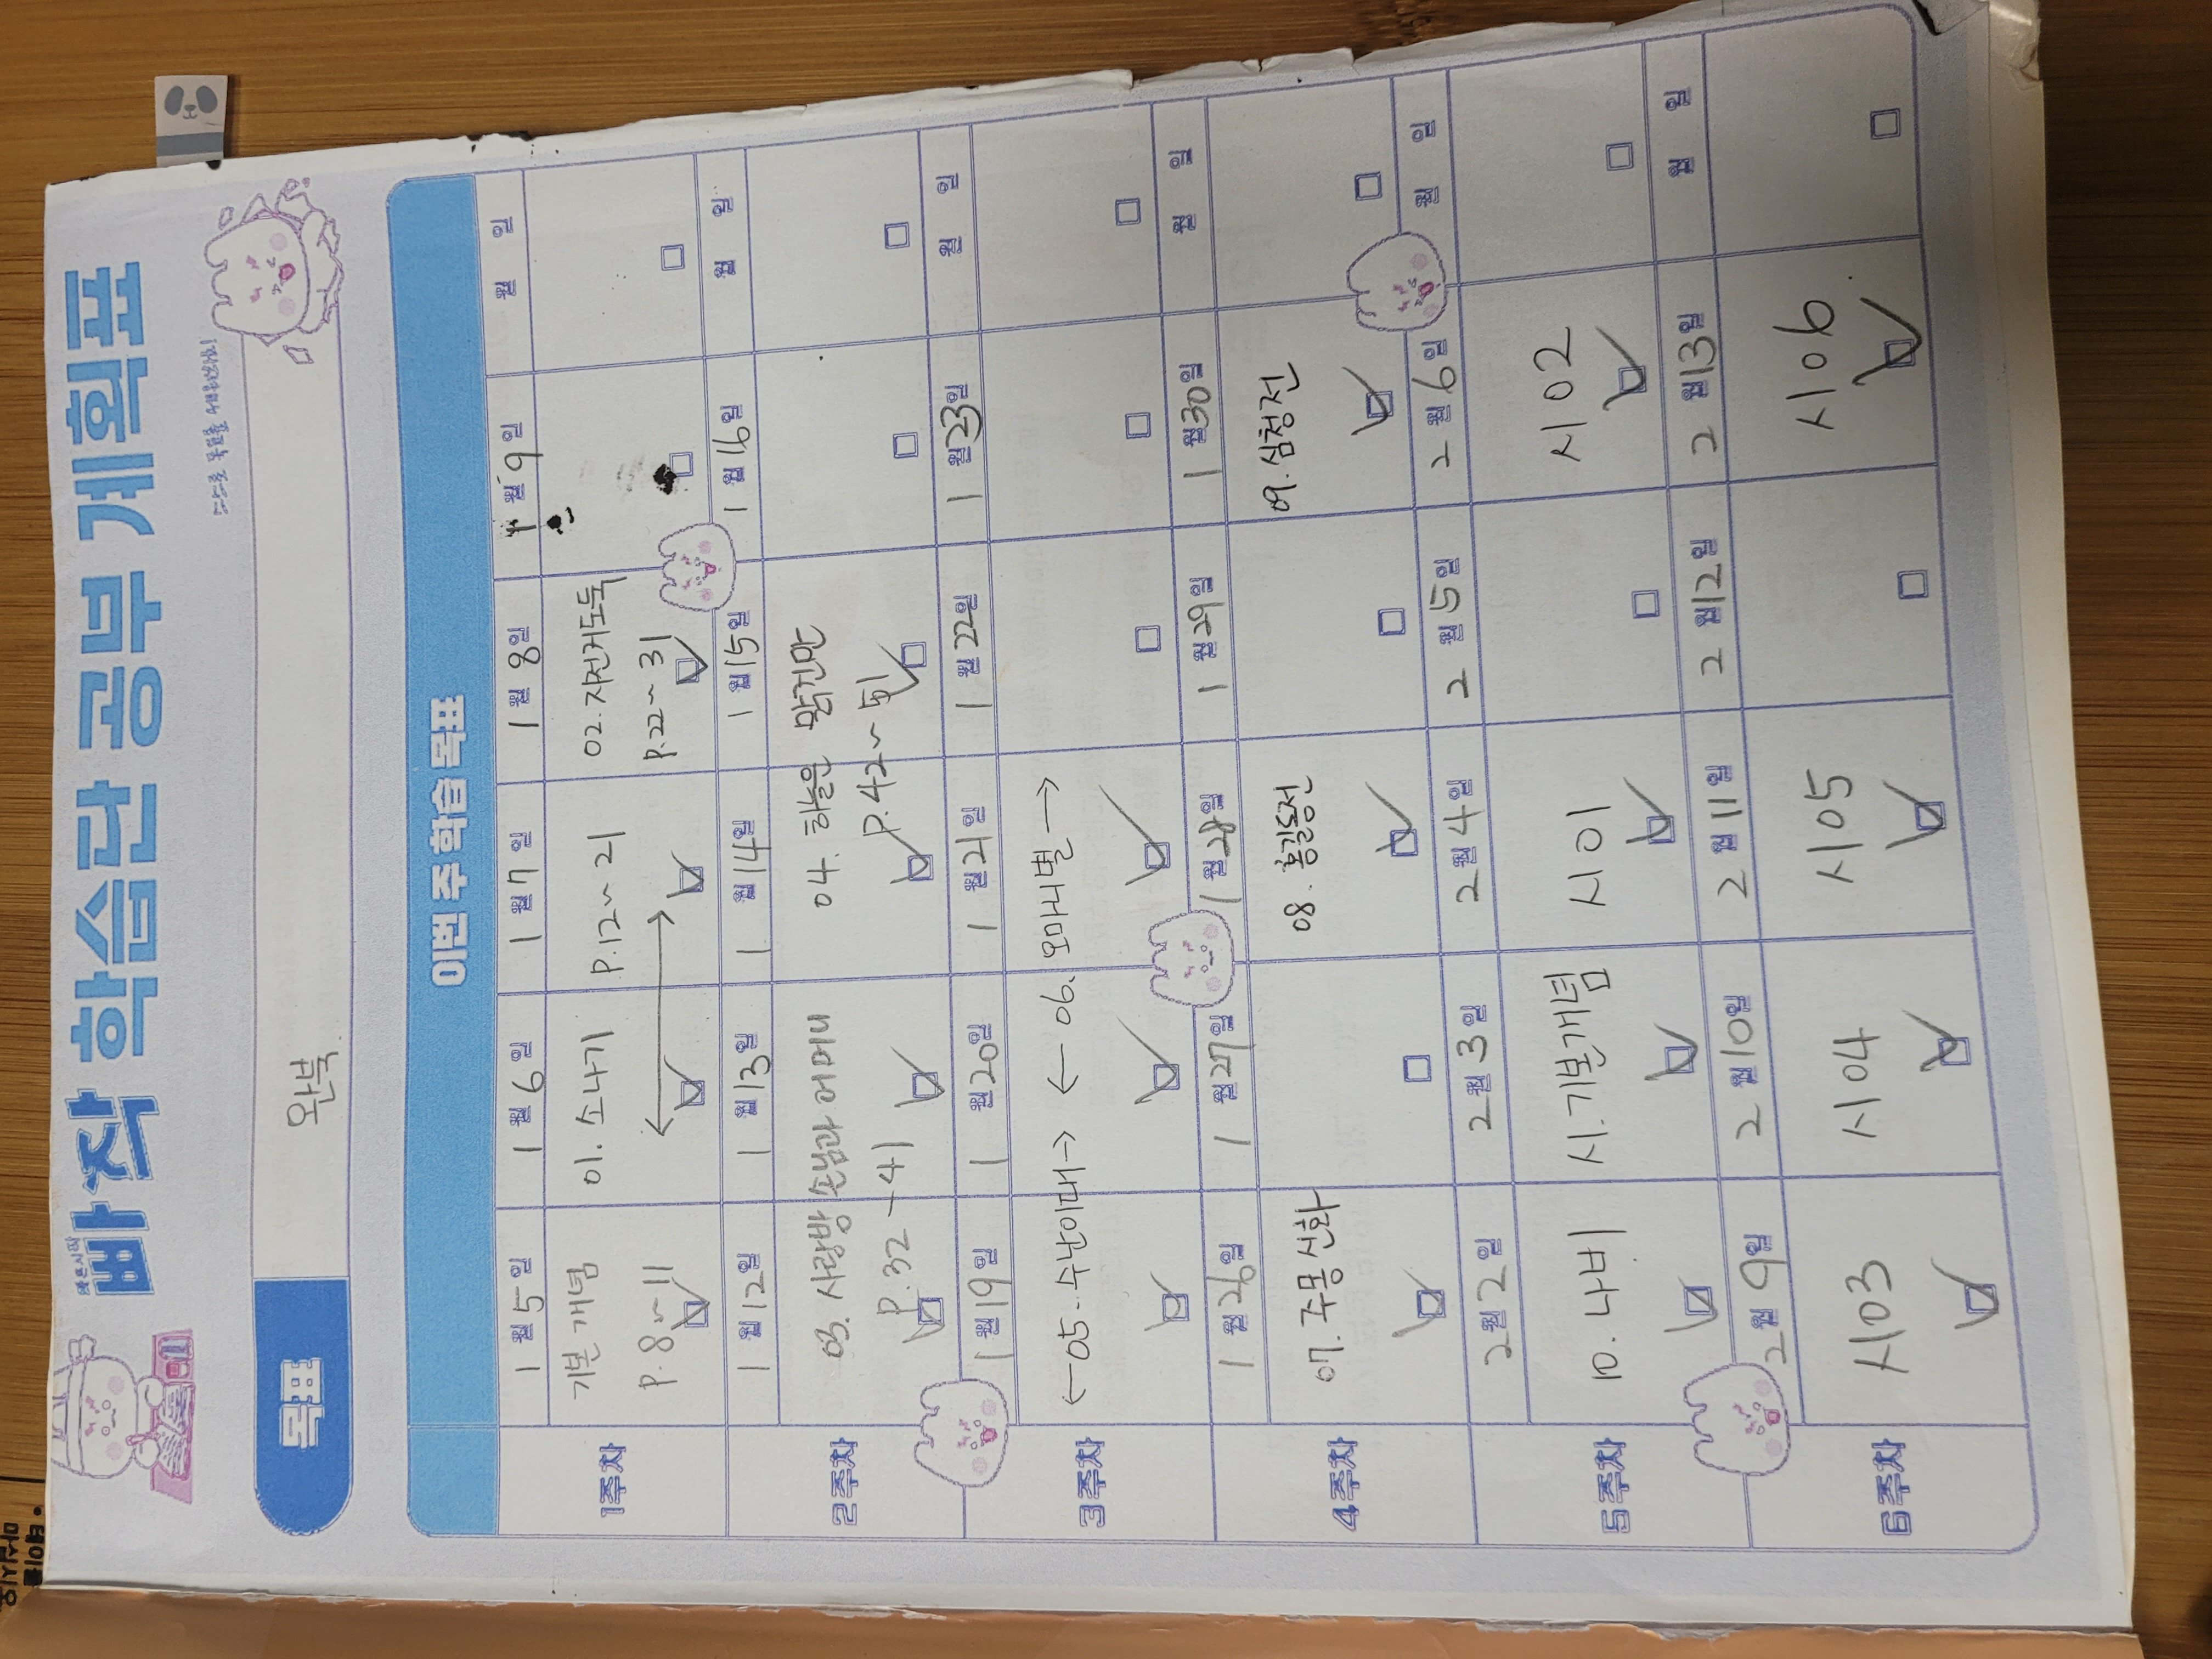 바른시작
빠작 학습단 공부 계획표
스스로 목표를 세워보세요!
목표
완북
이번 주 학습 목표
1월 5일 1월 6일 1월 7일 1월 8일 1월 9일 월 일
1주차
기본 개념 01. 소나기 P.12~21 02. 자전거도둑
P.8~11 P.22~31
1월 12일 1월 13일 1월 14일 1월 15일 1월 16일 월 일
2주차
03. 사랑방 손님과 어머니 04. 하늘은 맑건만
P.32~41 P.42~51
1월 19일 1월 20일 1월 21일 1월 22일 1월 23일 월 일
3주차
←05. 수난이대→ ←06. 모마니별→
1월 26일 1월 27일 1월 28일 1월 29일 1월 30일 월 일
4주차
07. 주몽 신화 08. 홍길동전 09. 심청전
2월 2일 2월 3일 2월 4일 2월 5일 2월 6일 월 일
5주차
10. 나비 시. 기본개념 시 01 시 02
2월 9일 2월 10일 2월 11일 2월 12일 2월 13일 월 일
6주차
시 03 시 04 시 05 시 06